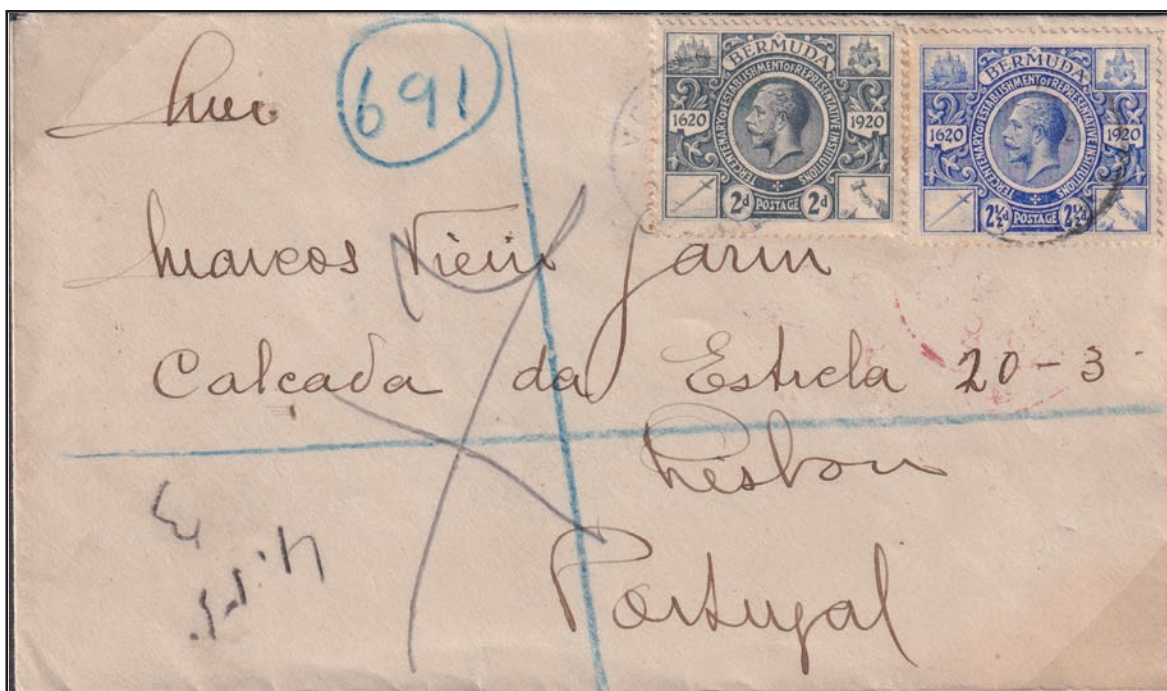 691
BERMUDA
TERCENTENARY OF ESTABLISHMENT OF REPRESENTATIVE INSTITUTIONS
1620 1920
2d POSTAGE 2d
BERMUDA
TERCENTENARY OF ESTABLISHMENT OF REPRESENTATIVE INSTITUTIONS
1620 1920
2½d POSTAGE 2½d
Marcos
Calçada da Estrela 20-3
Lisbon
Portugal